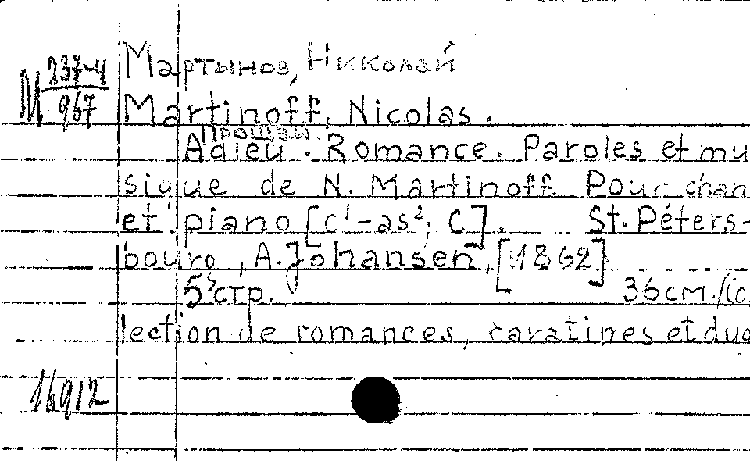 М 237-4/967
Мартынов, Николай
Martinoff, Nicolas.
Прощай.
Adieu. Romance. Paroles et mu
sique de N. Martinoff. Pour chan
et piano [c¹-as²; C]. St. Péters-
bourg, A. Johansen, [1862]
5 стр. 36 см. /(c
lection de romances, cavatines et duo
16912